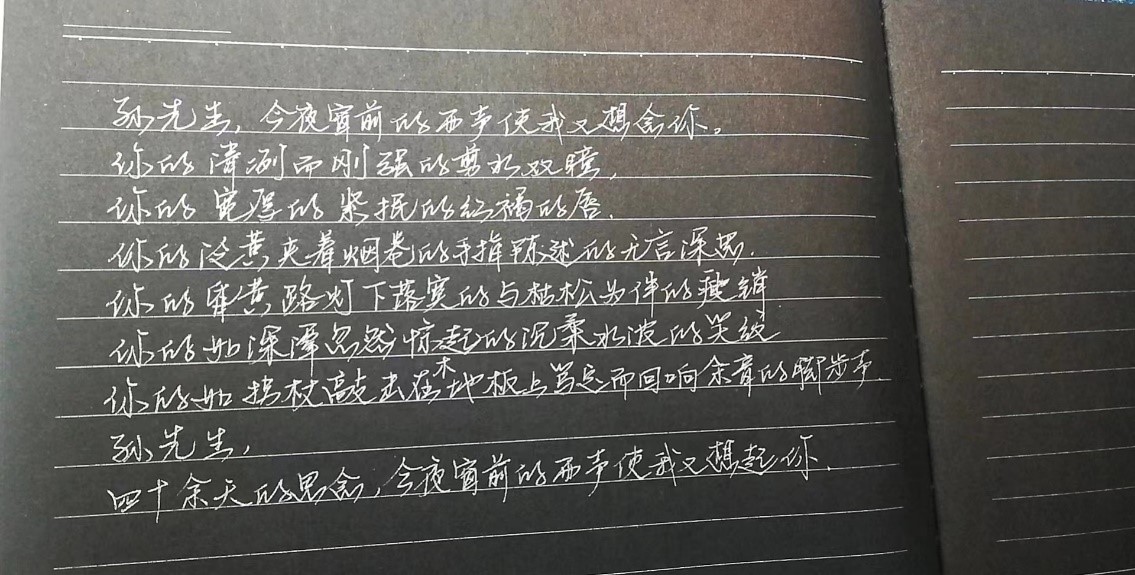 孙先生，今夜窗前的雨声使我又想念你。
你的清冽而刚强的剪水双瞳，
你的宽厚的紧抿的红褐的唇，
你的泛黄夹着烟卷的手指陈述的无言深思，
你的昏黄路灯下落寞的与枯松为伴的瘦销
你的如深潭忽然惊起的沉柔水波的笑纹
你的如拐杖敲击在木地板上笃定而回响余音的脚步声，
孙先生，
四十余天的思念，今夜窗前的雨声使我又想起你。